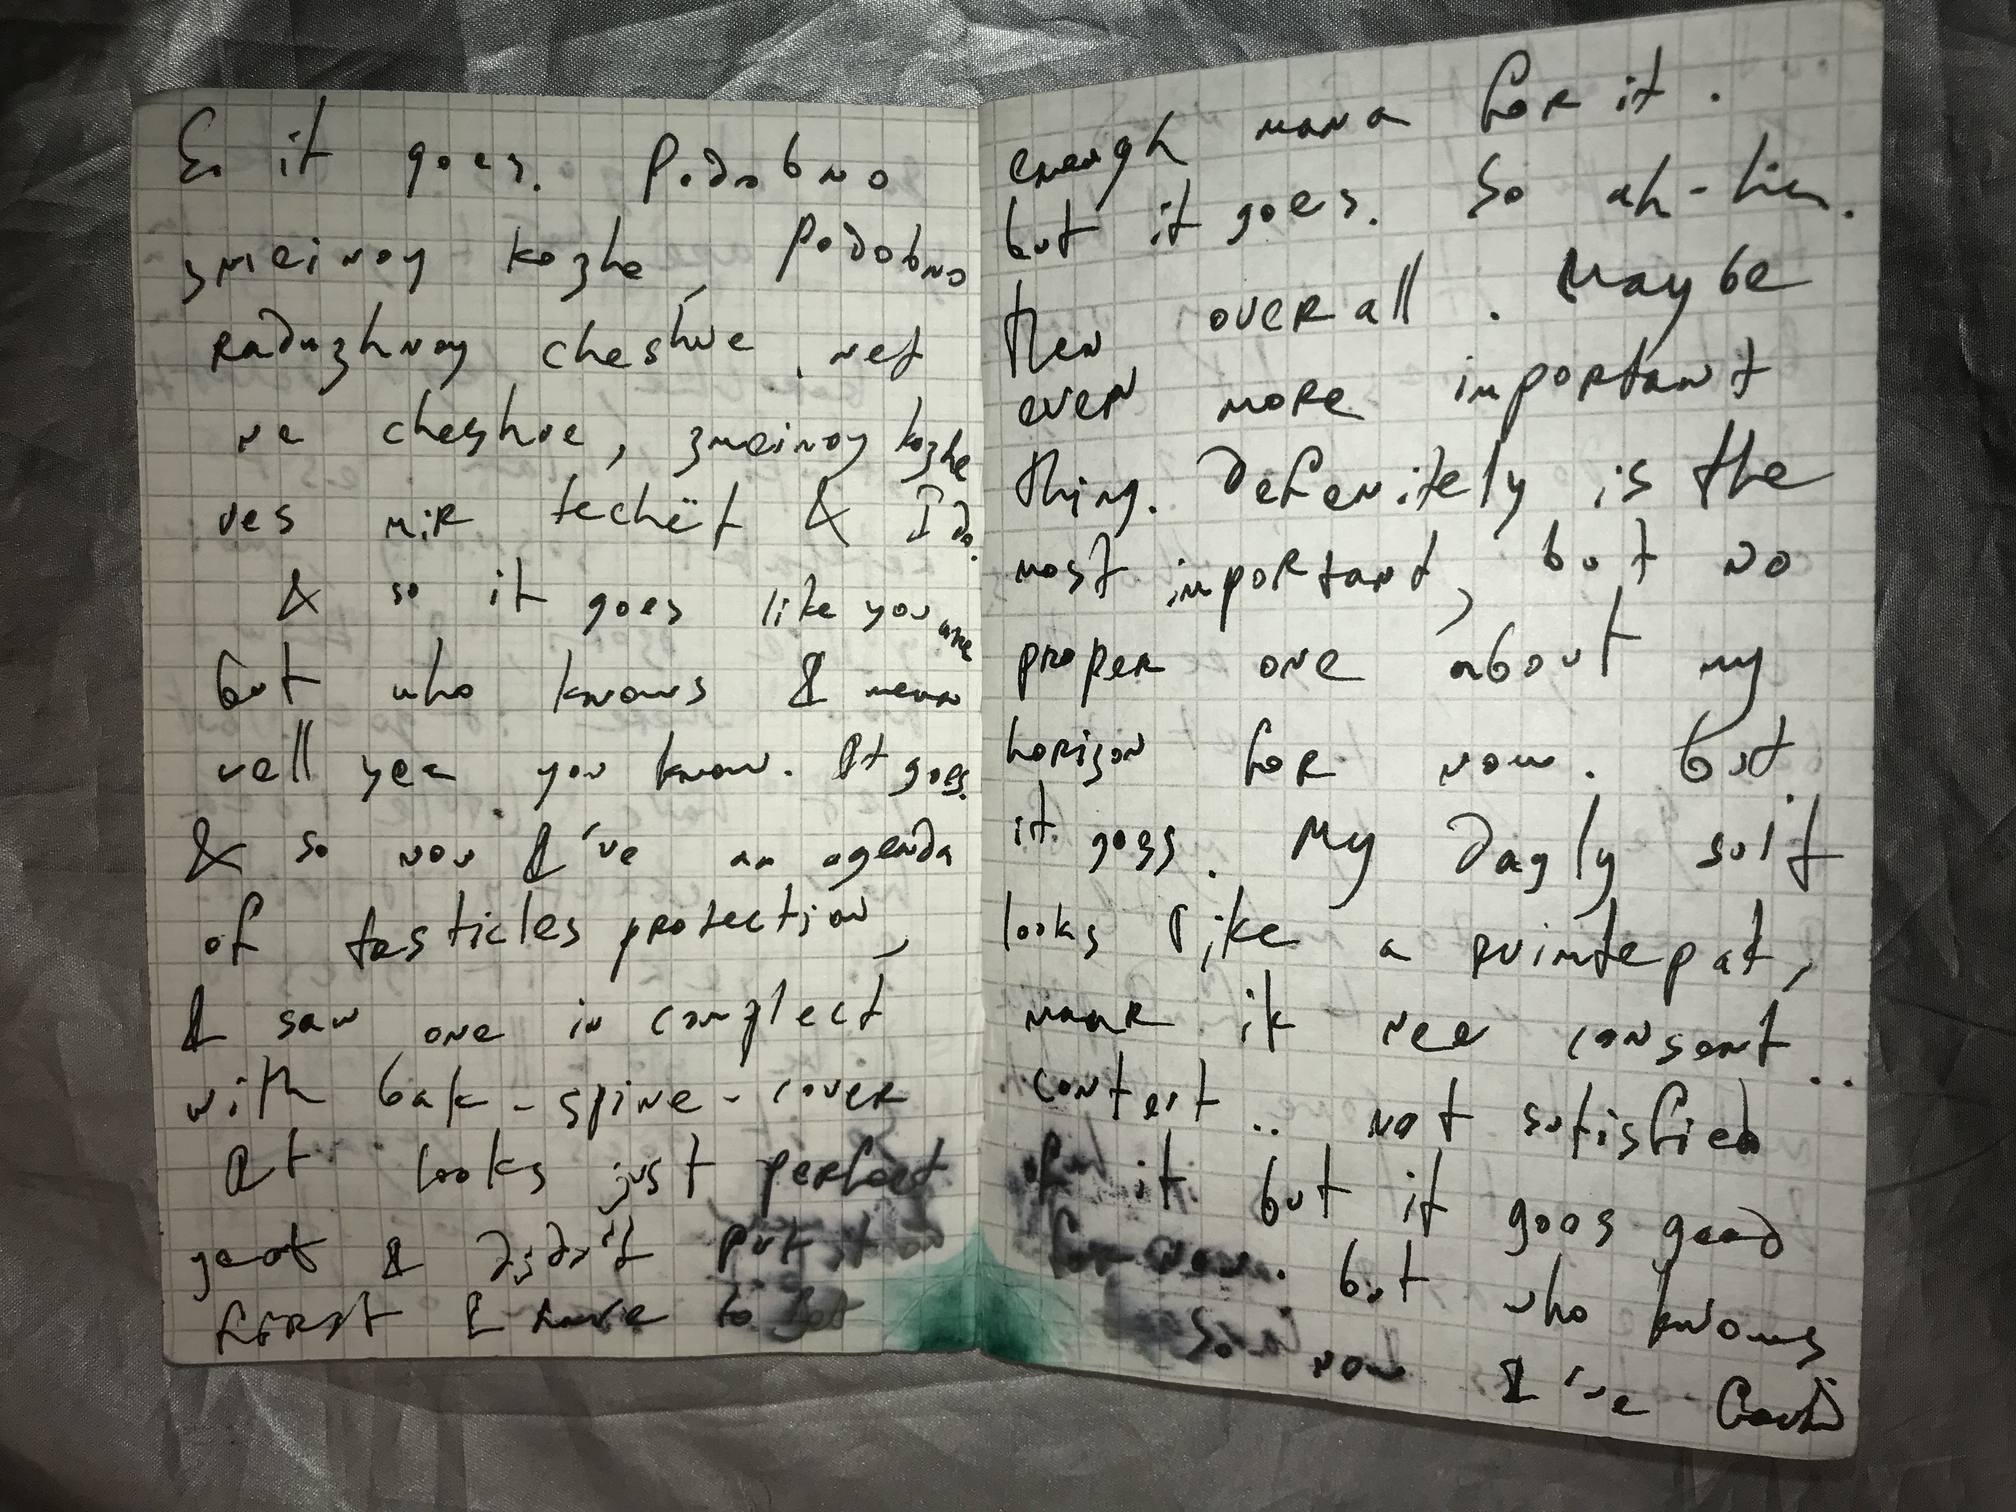 So it goes. Podobno
zmeinoy kozhe, podobno
raduzhnoy cheshue, net
ne cheshue, zmeinoy kozhe
ves mir techët & I do.
& so it goes like you are
but who knows & mean
vell yea you know. It goes.
& so now I've an agenda
of testicles protection,
I saw one in complect
with bak-spine-cover
It looks just perfect
yeat I didn't put it on
first I have to get
enough mana for it.
but it goes. So ah-hien.
then overall. Maybe
even more important
thing. Defenitely is the
most important, but no
proper one about my
horizon for now. but
it goes. My dayly suit
looks like a
maar ik nee consent..
content.. not sutisfied
of it but it goes good
for now. but who knows
So now I've